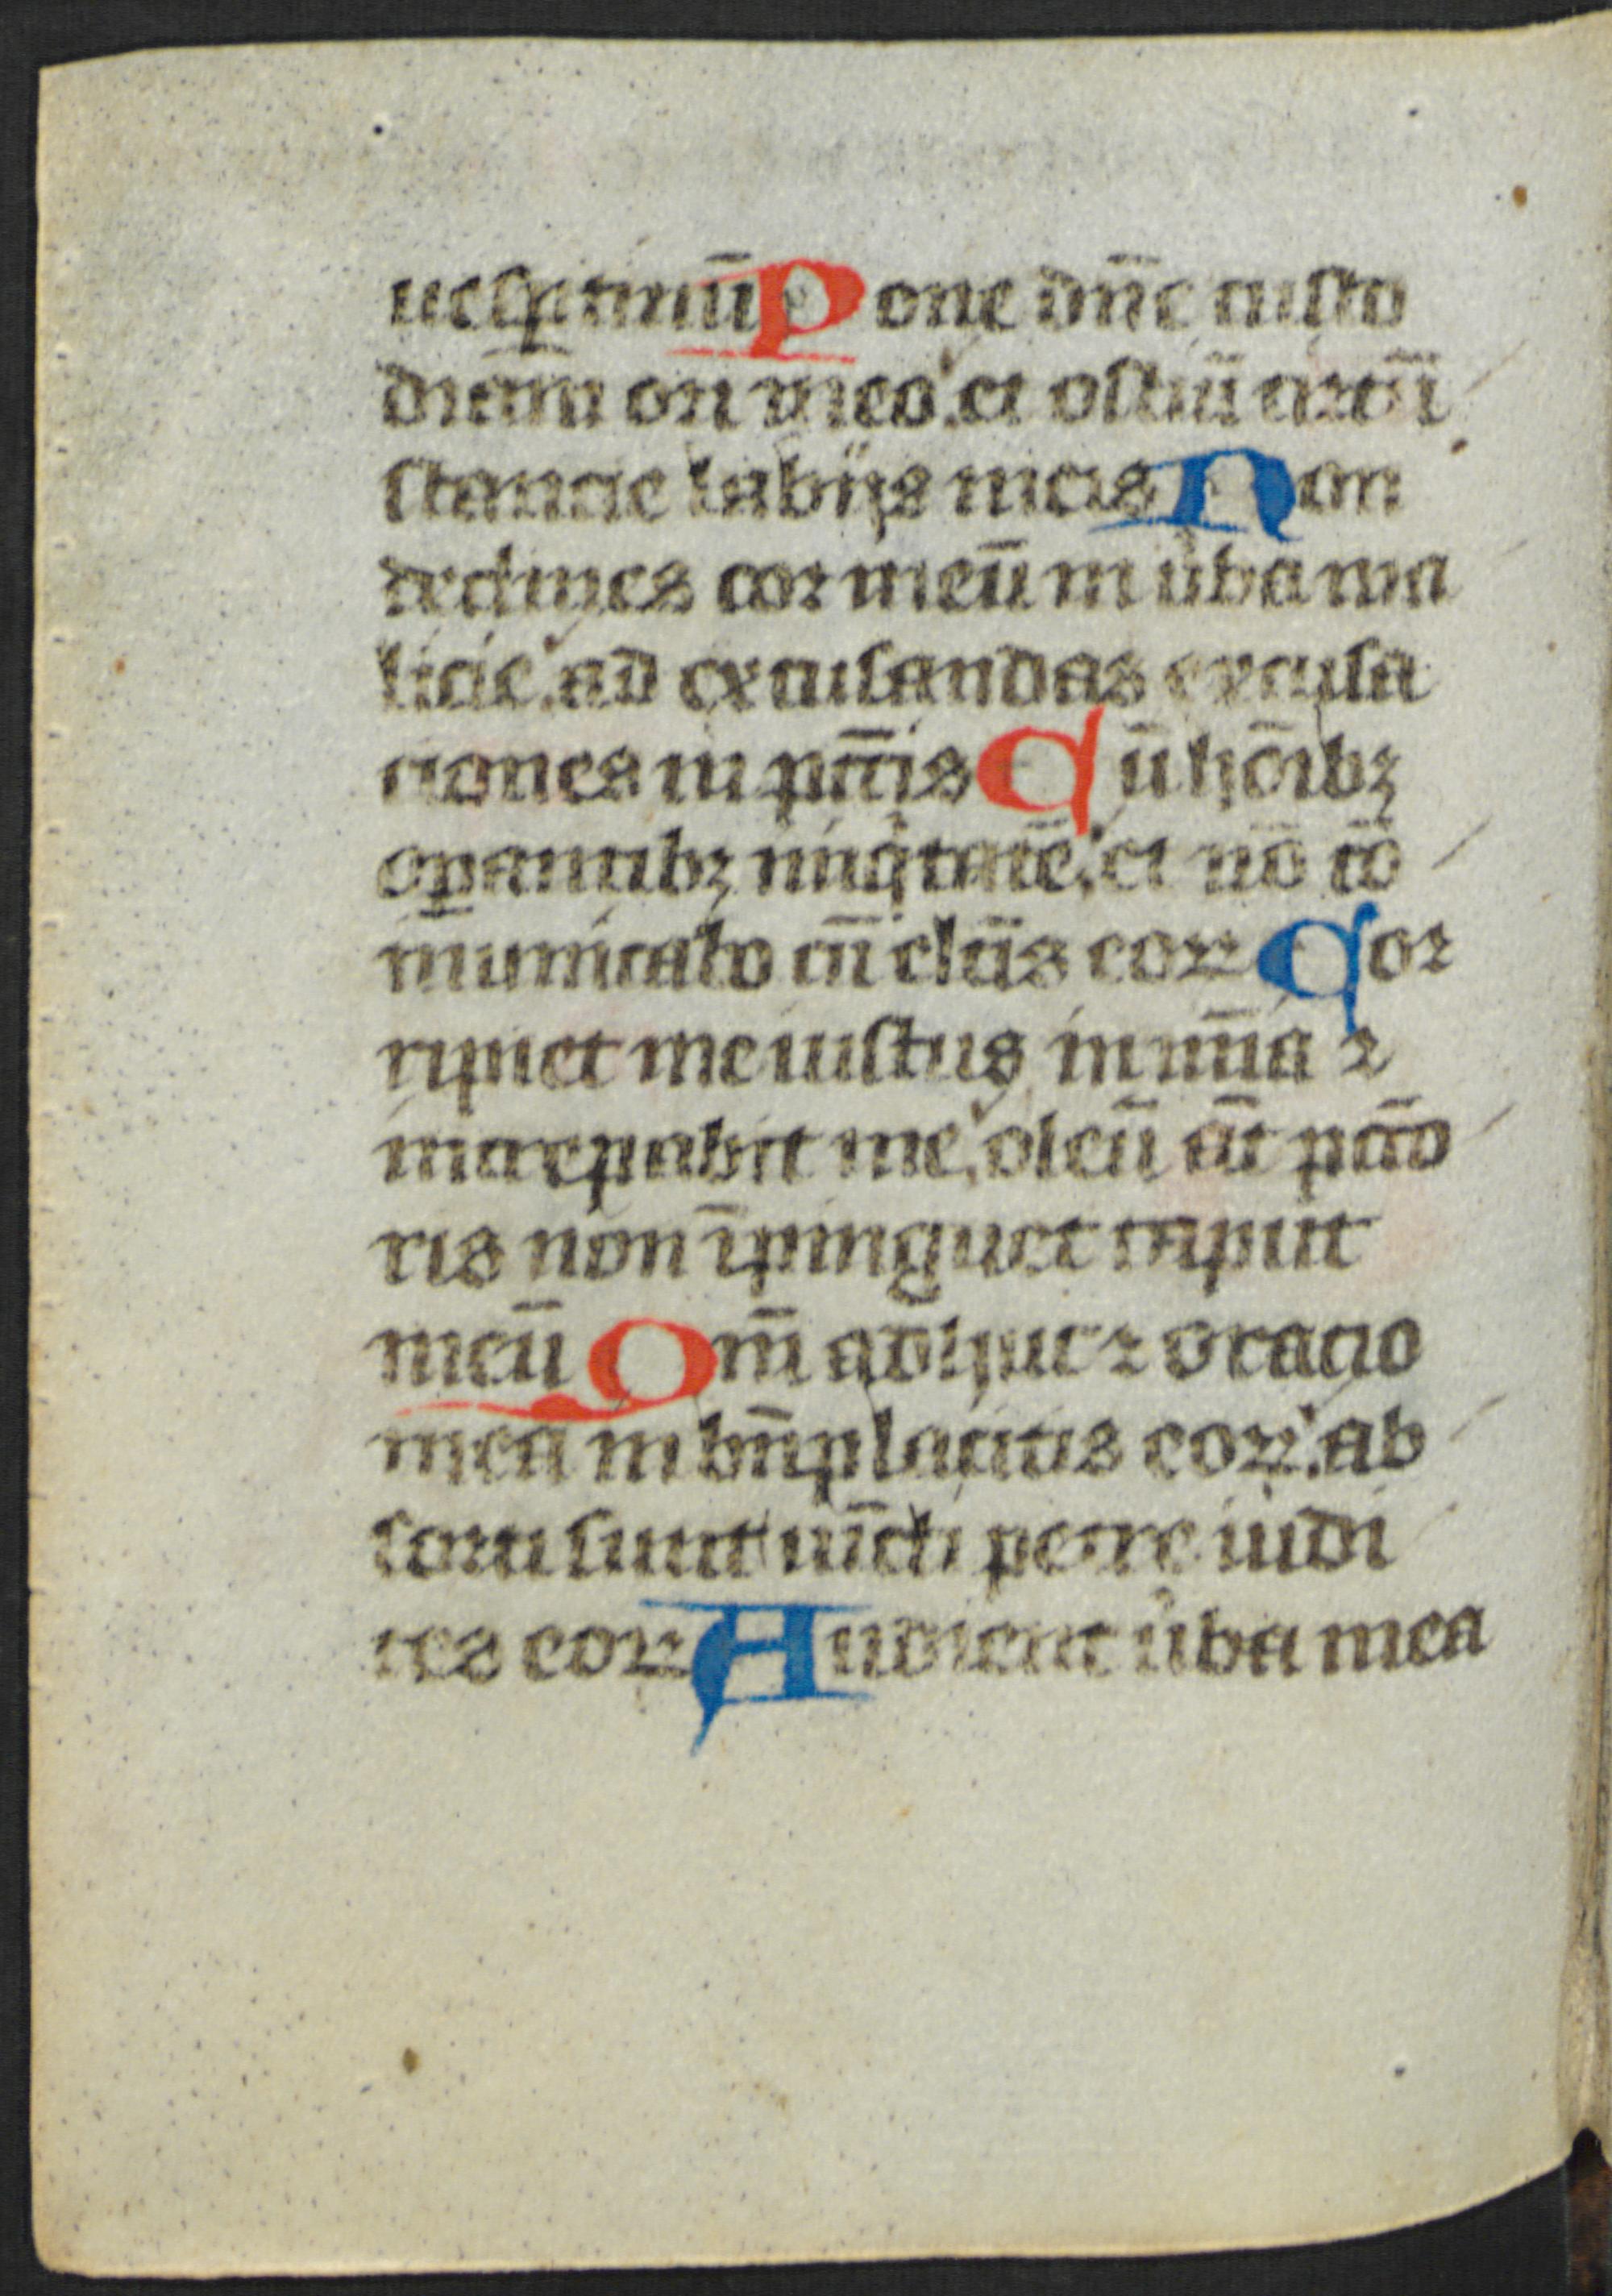 uesꝑtinū Pone dn̄e custo
diam ori meo. et ostiū circū
stancie labijs meis Non
declines cor meū in ůba ma
licie. ad excusandas excusa
ciones in pctı̄s Cū hoı̄bꝫ
oꝑantibꝫ iniqͥtatē. et nō cō
municabo cū elc̄is eoꝝ Cor
ripiet me iustus in mı̄a ⁊
increpabit me. oleū aūt pctō
ris non īpinguet caput
meū Qm̄ adhuc ⁊ oracio
mea in bn̄placitis eoꝝ. ab
sorti sunt iūcti petre iudi
ces eoꝝ Audient ůba mea